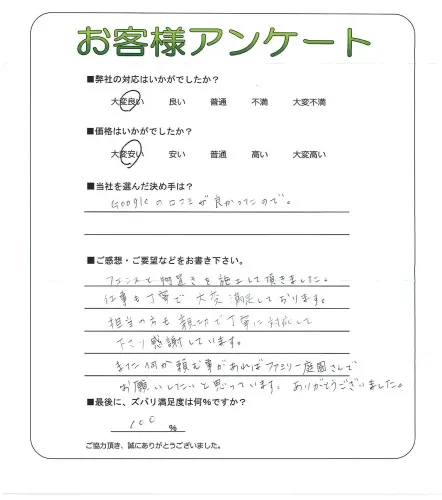 お客様アンケート
■弊社の対応はいかがでしたか？
大変良い 良い 普通 不満 大変不満
■価格はいかがでしたか？
大変安い 安い 普通 高い 大変高い
■当社を選んだ決め手は？
Googleの口コミが良かったので。
■ご感想・ご要望などをお書き下さい。
フェンスと物置きを施工して頂きました。
仕事も丁寧で大変満足しております。
担当の方も親切で丁寧に対応して
下さり感謝しています。
また何か頼む事があればファミリー庭園さんで
お願いしたいと思っています。ありがとうございました。
■最後に、ズバリ満足度は何%ですか？
100 %
ご協力頂き、誠にありがとうございました。